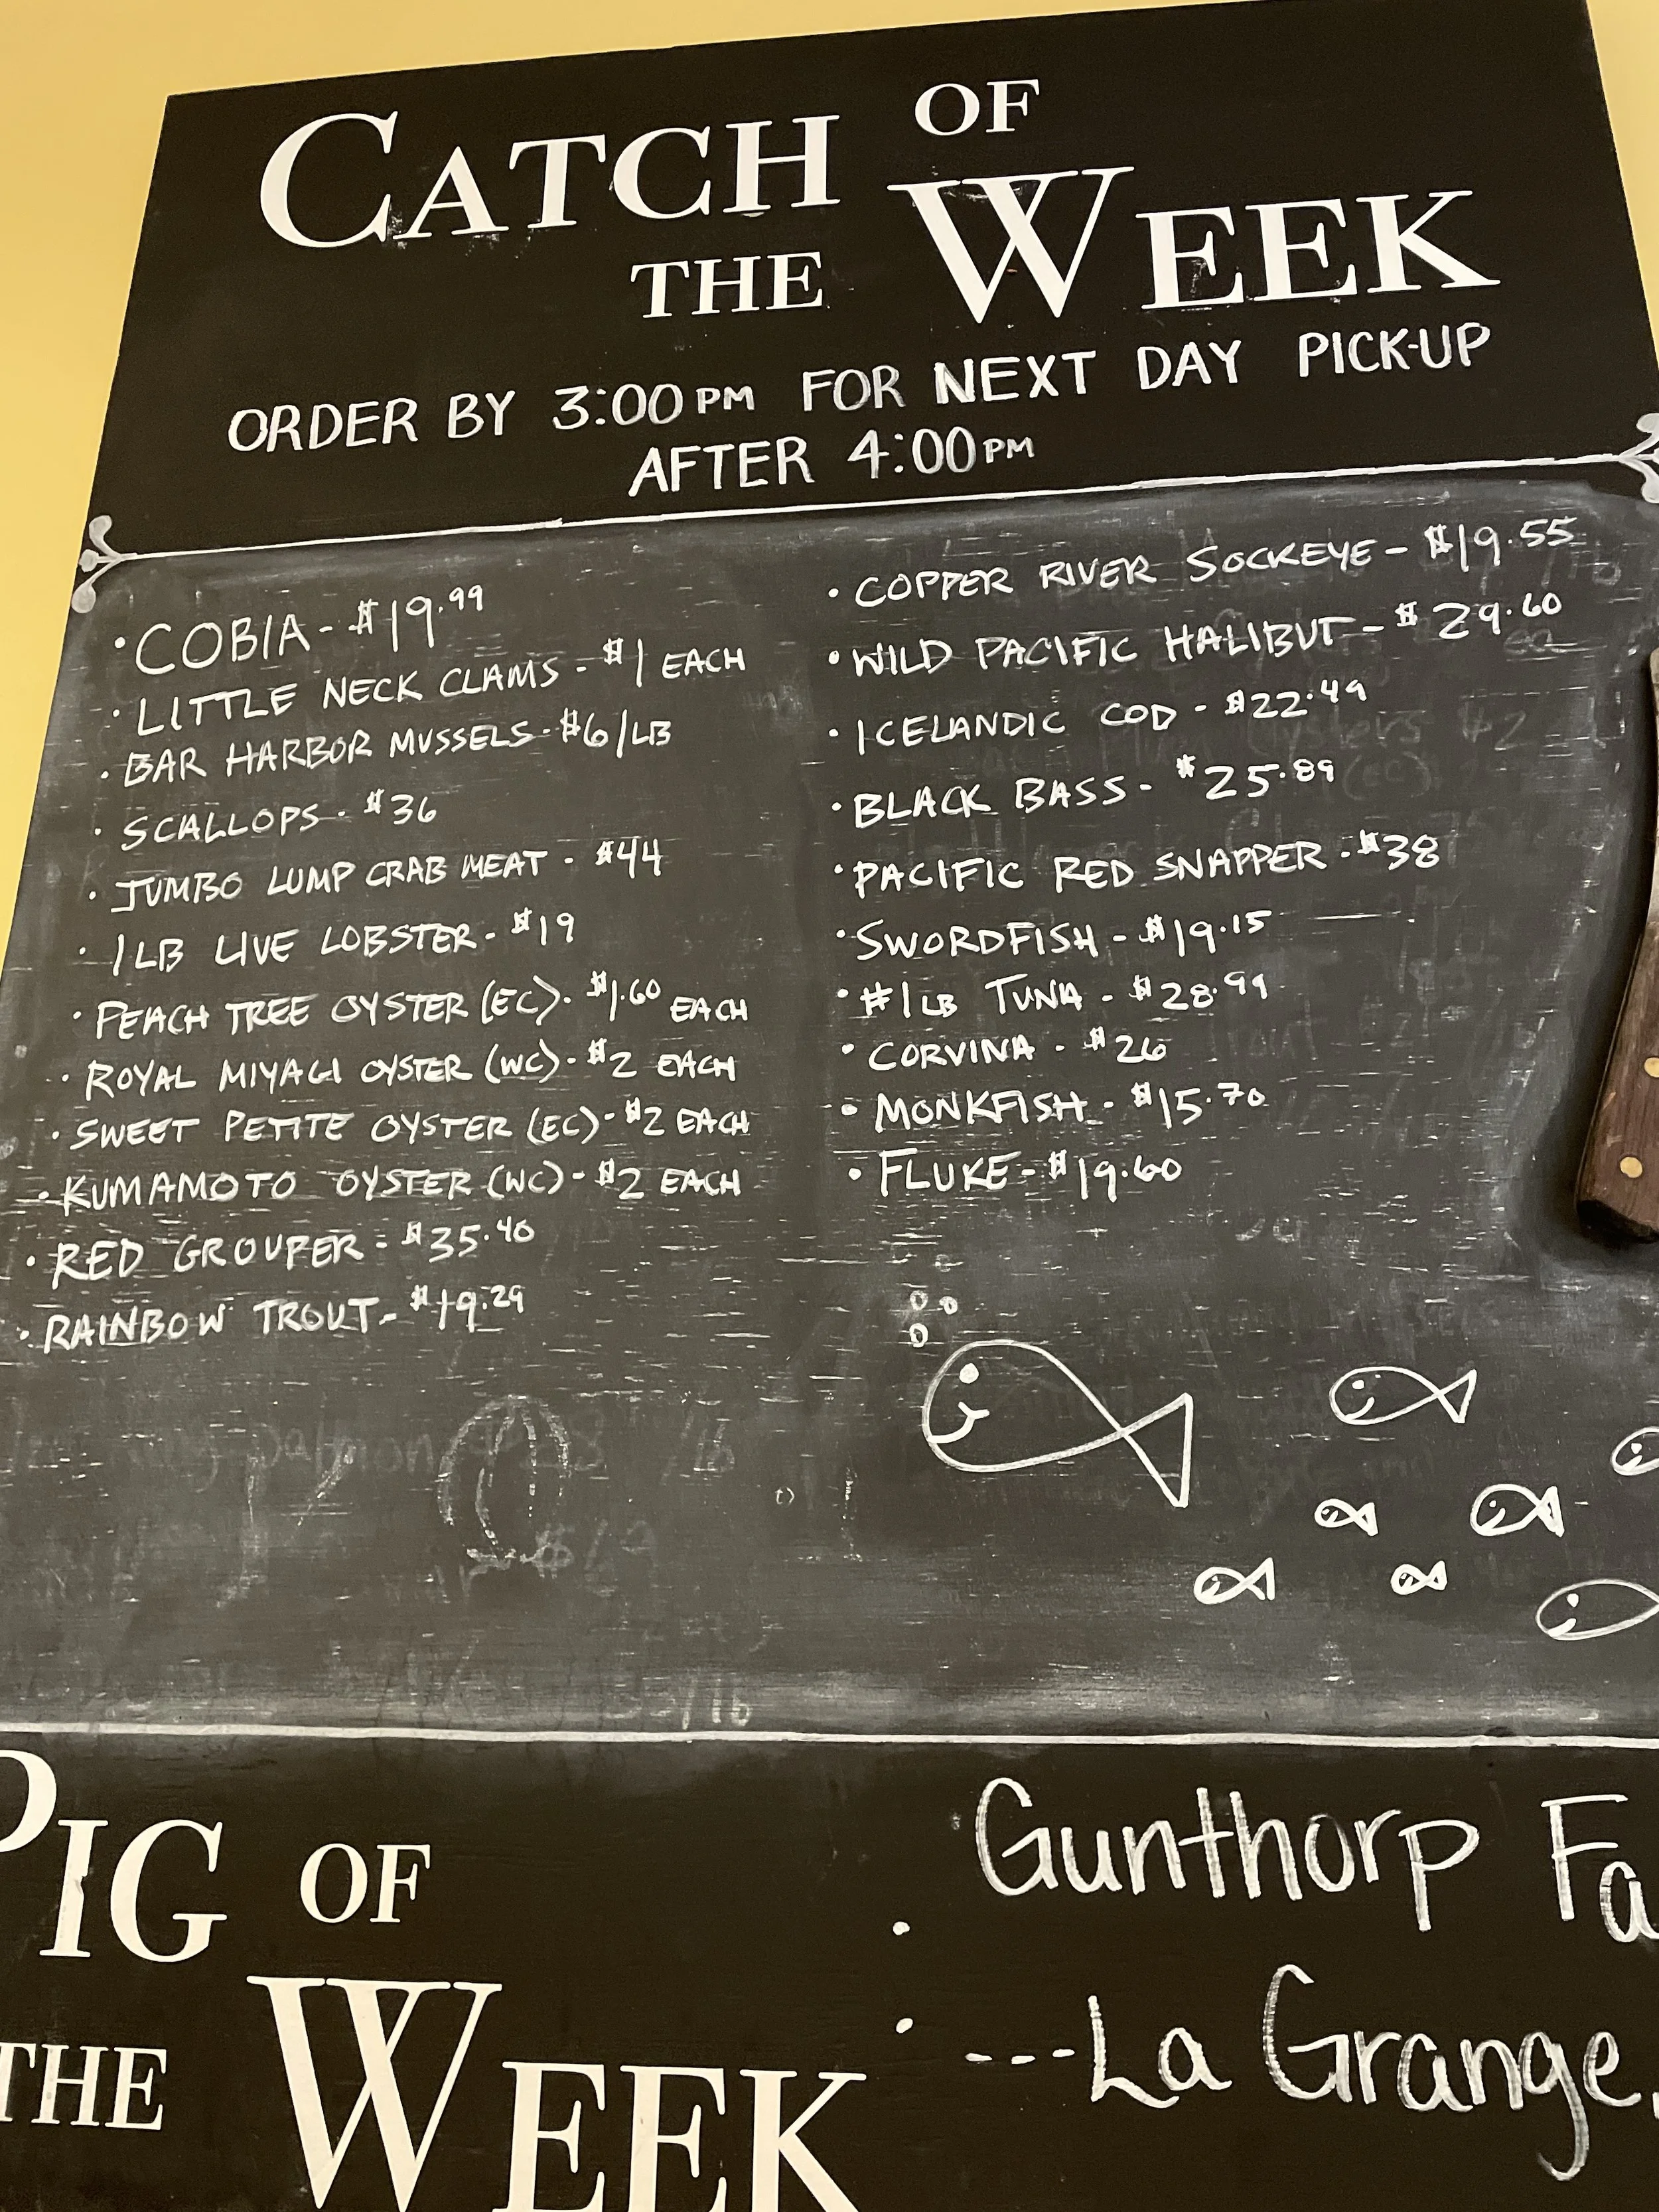 CATCH OF
THE WEEK
ORDER BY 3:00PM FOR NEXT DAY PICK-UP
AFTER 4:00PM
• COBIA - $19.99
• LITTLE NECK CLAMS - $1 EACH
• BAR HARBOR MUSSELS - $6/LB
• SCALLOPS - $36
• JUMBO LUMP CRAB MEAT - $44
• 1LB LIVE LOBSTER - $19
• PEACH TREE OYSTER (EC) - $1.60 EACH
• ROYAL MIYAGI OYSTER (WC) - $2 EACH
• SWEET PETITE OYSTER (EC) - $2 EACH
• KUMAMOTO OYSTER (WC) - $2 EACH
• RED GROUPER - $35.40
• RAINBOW TROUT - $19.29
• COPPER RIVER SOCKEYE - $19.55
• WILD PACIFIC HALIBUT - $29.60
• ICELANDIC COD - $22.49
• BLACK BASS - $25.89
• PACIFIC RED SNAPPER - $38
• SWORDFISH - $19.15
• #1LB TUNA - $28.99
• CORVINA - $26
• MONKFISH - $15.70
• FLUKE - $19.60
PIG OF
THE WEEK
Gunthorp Fa
---La Grange,